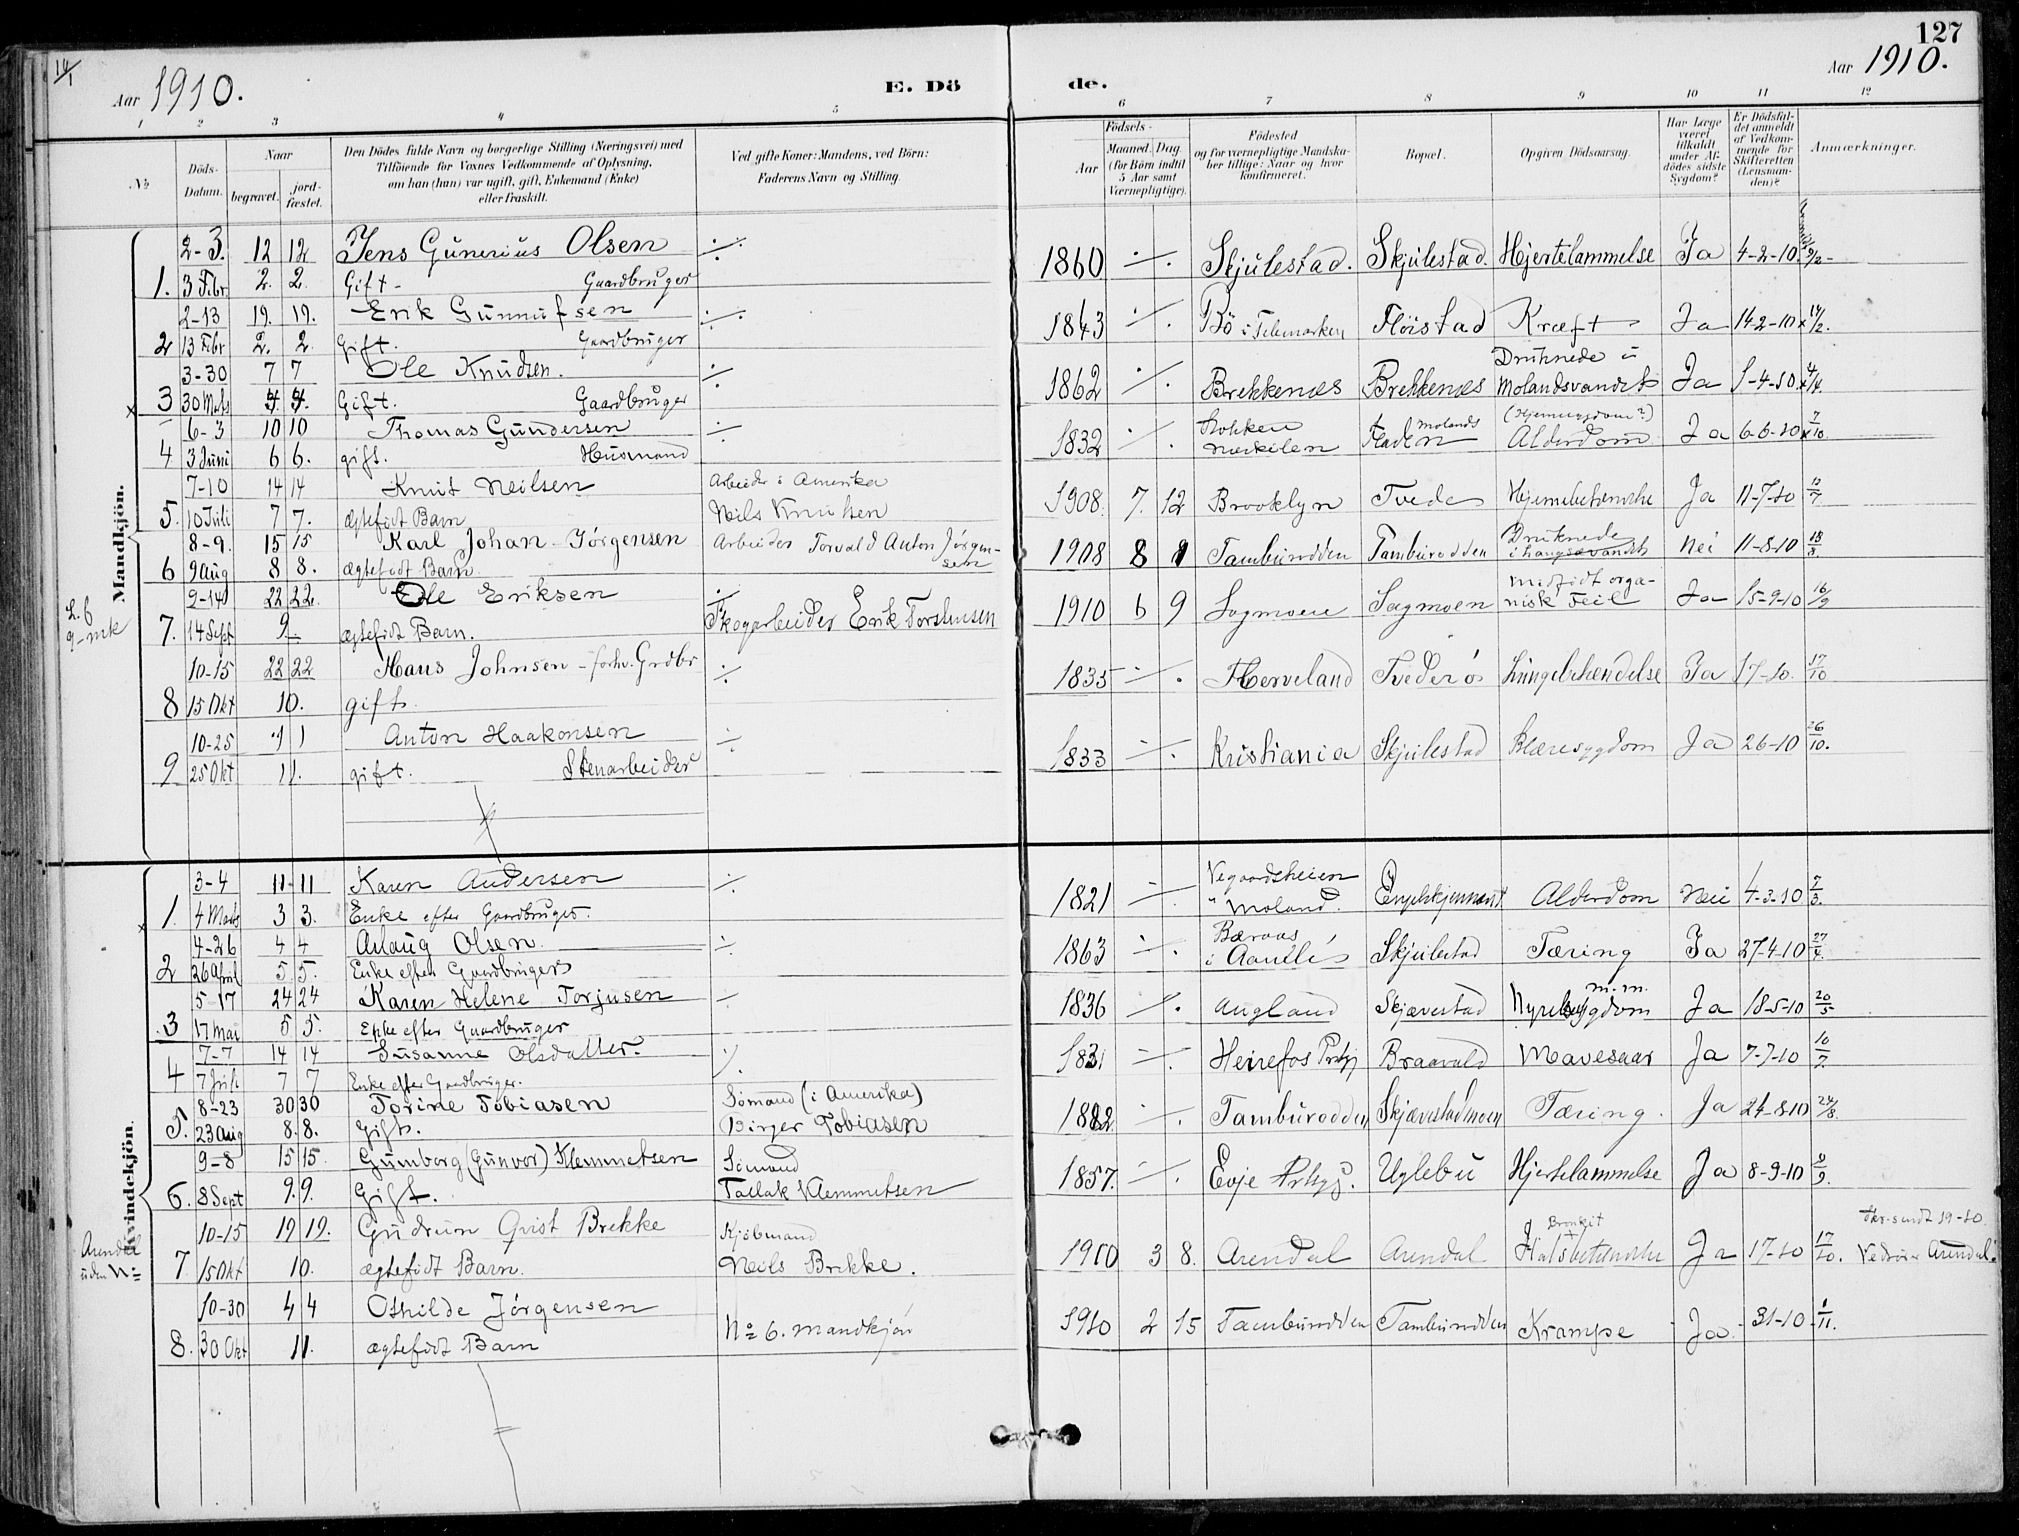 14/1
Aar 1910.
E. Dö
de.
127
Aar 1910.
1 2 3 4 5 6 7 8 9 10 11 12
No
Döds-Datum.
Naar begravet. jord-fæstet.
Den Dödes fulde Navn og borgerlige Stilling (Næringsvei) med
Tilföiende for Voxnes Vedkommende af Oplysning,
om han (hun) var ugift, gift, Enkemand (Enke)
eller fraskilt.
Ved gifte Koner: Mandens, ved Börn:
Faderens Navn og Stilling.
Födsels-
Aar Maaned. Dag
(for Börn indtil 5 Aar samt Værnepligtige).
Födested
og for værnepligtige Mandska-
ber tillige: Naar og hvor
konfirmeret.
Bopæl.
Opgiven Dödsaarsag.
Har Læge været tilkaldt under Af-dödes sidste Sygdom?
Er Dödsfal-det anmeldt af Vedkom-mende for Skifteretten (Lensman-den)?
Anmærkninger.
Mandkjön.
2-3. 12 12 Jens Gunerius Olsen ./. 1860 ./. Skjulestad. Skjulestad. Hjertelammelse Ja 4-2-10. 9/2
1. 3 Febr. 2. 2. Gift - Gaardbruger
2-13 19. 19. Erik Gunnufsen ./. 1843 ./. Bö i Telemarken Flöistad Kræft Ja 14-2-10 14/2.
2 13 Febr 2. 2 Gift. Gaardbruger
3-30 7 7 Ole Knudsen. ./. 1862 ./. Brekkenæs Brekkenæs Druknede i Molandsvandet Ja 1-4-10 4/4.
3 30 Marts 4. 4. Gift. Gaardbruger
6-3 10 10 Thomas Gundersen ./. 1832 ./. Molands Alderdom Ja 6-6-10 7/10.
4 3 Juni 6 6. gift. Husmand
7-10 14 14 Knut Neilsen Arbeider i Amerika 1908. 7. 12 Brooklyn Tvede Ja 11-7-10 12/7.
5. 10 Juli 7 7. ægtefödt Barn Neils Knutsen
8-9. 15 15 Karl Johan Jörgensen Arbeider Torvald Anton Jörgen-sen 1908 8 9 Tamburodden Tamburodden Druknede i Langsævandet Nei 11-8-10 18/8.
6 9 Aug 8 8. ægtefödt Barn
L. 6
9-mk
9-14 22 22 Ole Eriksen ./. 1910 6 9 Sagmoen Sagmoen Medfödt orga-nisk Feil Ja 15-9-10 16/9
7. 14 Sept 9 ægtefödt Barn. Skogarbeider Erik Torstensen
10-15 22 22 Hans Johnsen - forhv. Grdbr ./. 1835 ./. Herveland Tvederö Ja 17-10. 17/10
8 15 Okt 10. gift.
10-25 1 1 Anton Haakonsen ./. 1833 ./. Kristiania Skjulestad Blæresygdom Ja 26-10 26/10.
9 25 Okt 11. gift. Stenarbeider
Kvindekjön.
3-4 11 11 Karen Andersen ./. 1821 ./. Vegaardsheien " Moland. Alderdom Nei 4-3-10 7/3.
1. 4 Marts 3 3. Enke efter Gaardbruger.
4-26 4 4 Aslaug Olsen ./. 1863 ./. Skjulestad Tæring Ja 27-4-10 27/4.
2 26 April 5 5. Enke efter Gaardbruger
5-17 24 24 Karen Helene Torjusen ./. 1836 ./. Augland Skjævestad Nyresygdom m.m. Ja 18-5-10 20/5
3 17 Mai 5 5. Enke efter Gaardbruger
7-7 14 14 Susanne Olsdatter. ./. 1831 ./. Herrefos Prstgj Braavold Mavesaar Ja 7-7-10 10/7.
4 7 Juli 7 7 Enke efter Gaardbruger.
8-23 30 30 Torine Tobiasen Sömand (i Amerika) 1882 ./. Tamburodden Skjævestadmoen Tæring. Ja 24-8-10 24/8.
5. 23 Aug 8. 8. Gift. Birger Tobiasen
9-8 15 15 Gumborg (Gunvor) Klemmetsen Sömand 1857. ./. Evje Prstgj. Uglebu Hjertelammelse Ja 8-9-10 8/9.
6. 8 Sept 9. 9. Gift. Tallak Klemmetsen
Arendal
uden No
10-15 19 19. Gudrun Qvist Brekke Kjöbmand 1910 3 8. Arendal Arendal Bronkit Halsbetændelse Ja 17-10 17/10. Skr. sendt 19-10
7 15 Okt 10. ægtefödt Barn. Neils Brekke. Arendal.
10-30 4 4 Othilde Jörgensen No 6. Mandkjön 1910 2 15 Tamburodden Tamburodden Krampe Ja 31-10 1/11.
8. 30 Okt 11. ægtefödt Barn